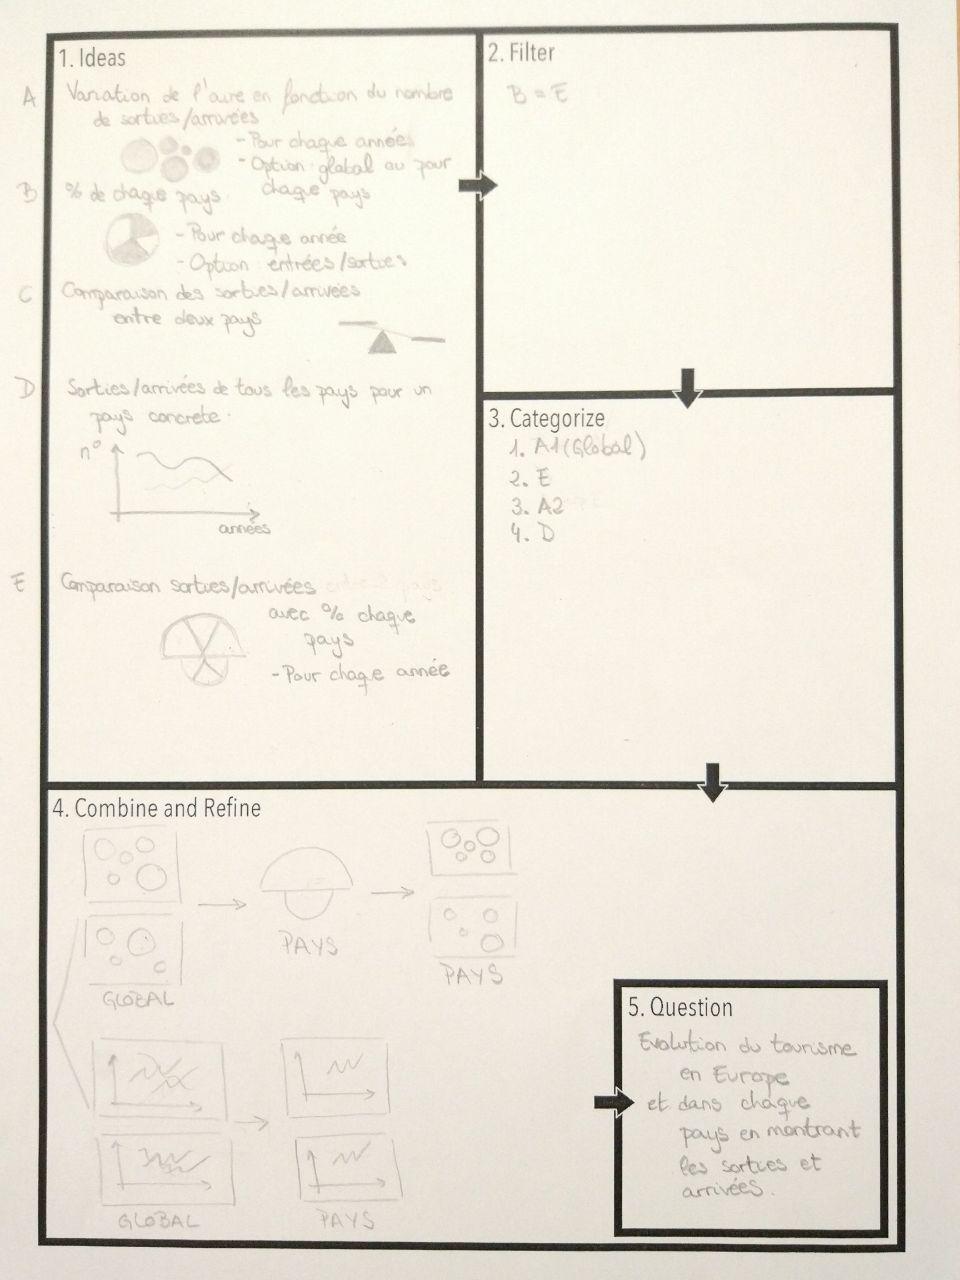 1. Ideas
A Variation de l'aire en fonction du nombre
de sorties/arrivées
- Pour chaque année
- Option: global ou pour
chaque pays
B % de chaque pays.
- Pour chaque année
- Option: entrées/sorties
C Comparaison des sorties/arrivées
entre deux pays
D Sorties/arrivées de tous les pays pour un
pays concrete.
n°
années
E Comparaison sorties/arrivées
avec % chaque
pays
- Pour chaque année
2. Filter
B = E
3. Categorize
1. A1 (Global)
2. E
3. A2
4. D
4. Combine and Refine
GLOBAL
PAYS
PAYS
GLOBAL
PAYS
5. Question
Evolution du tourisme
en Europe
et dans chaque
pays en montrant
les sorties et
arrivées.